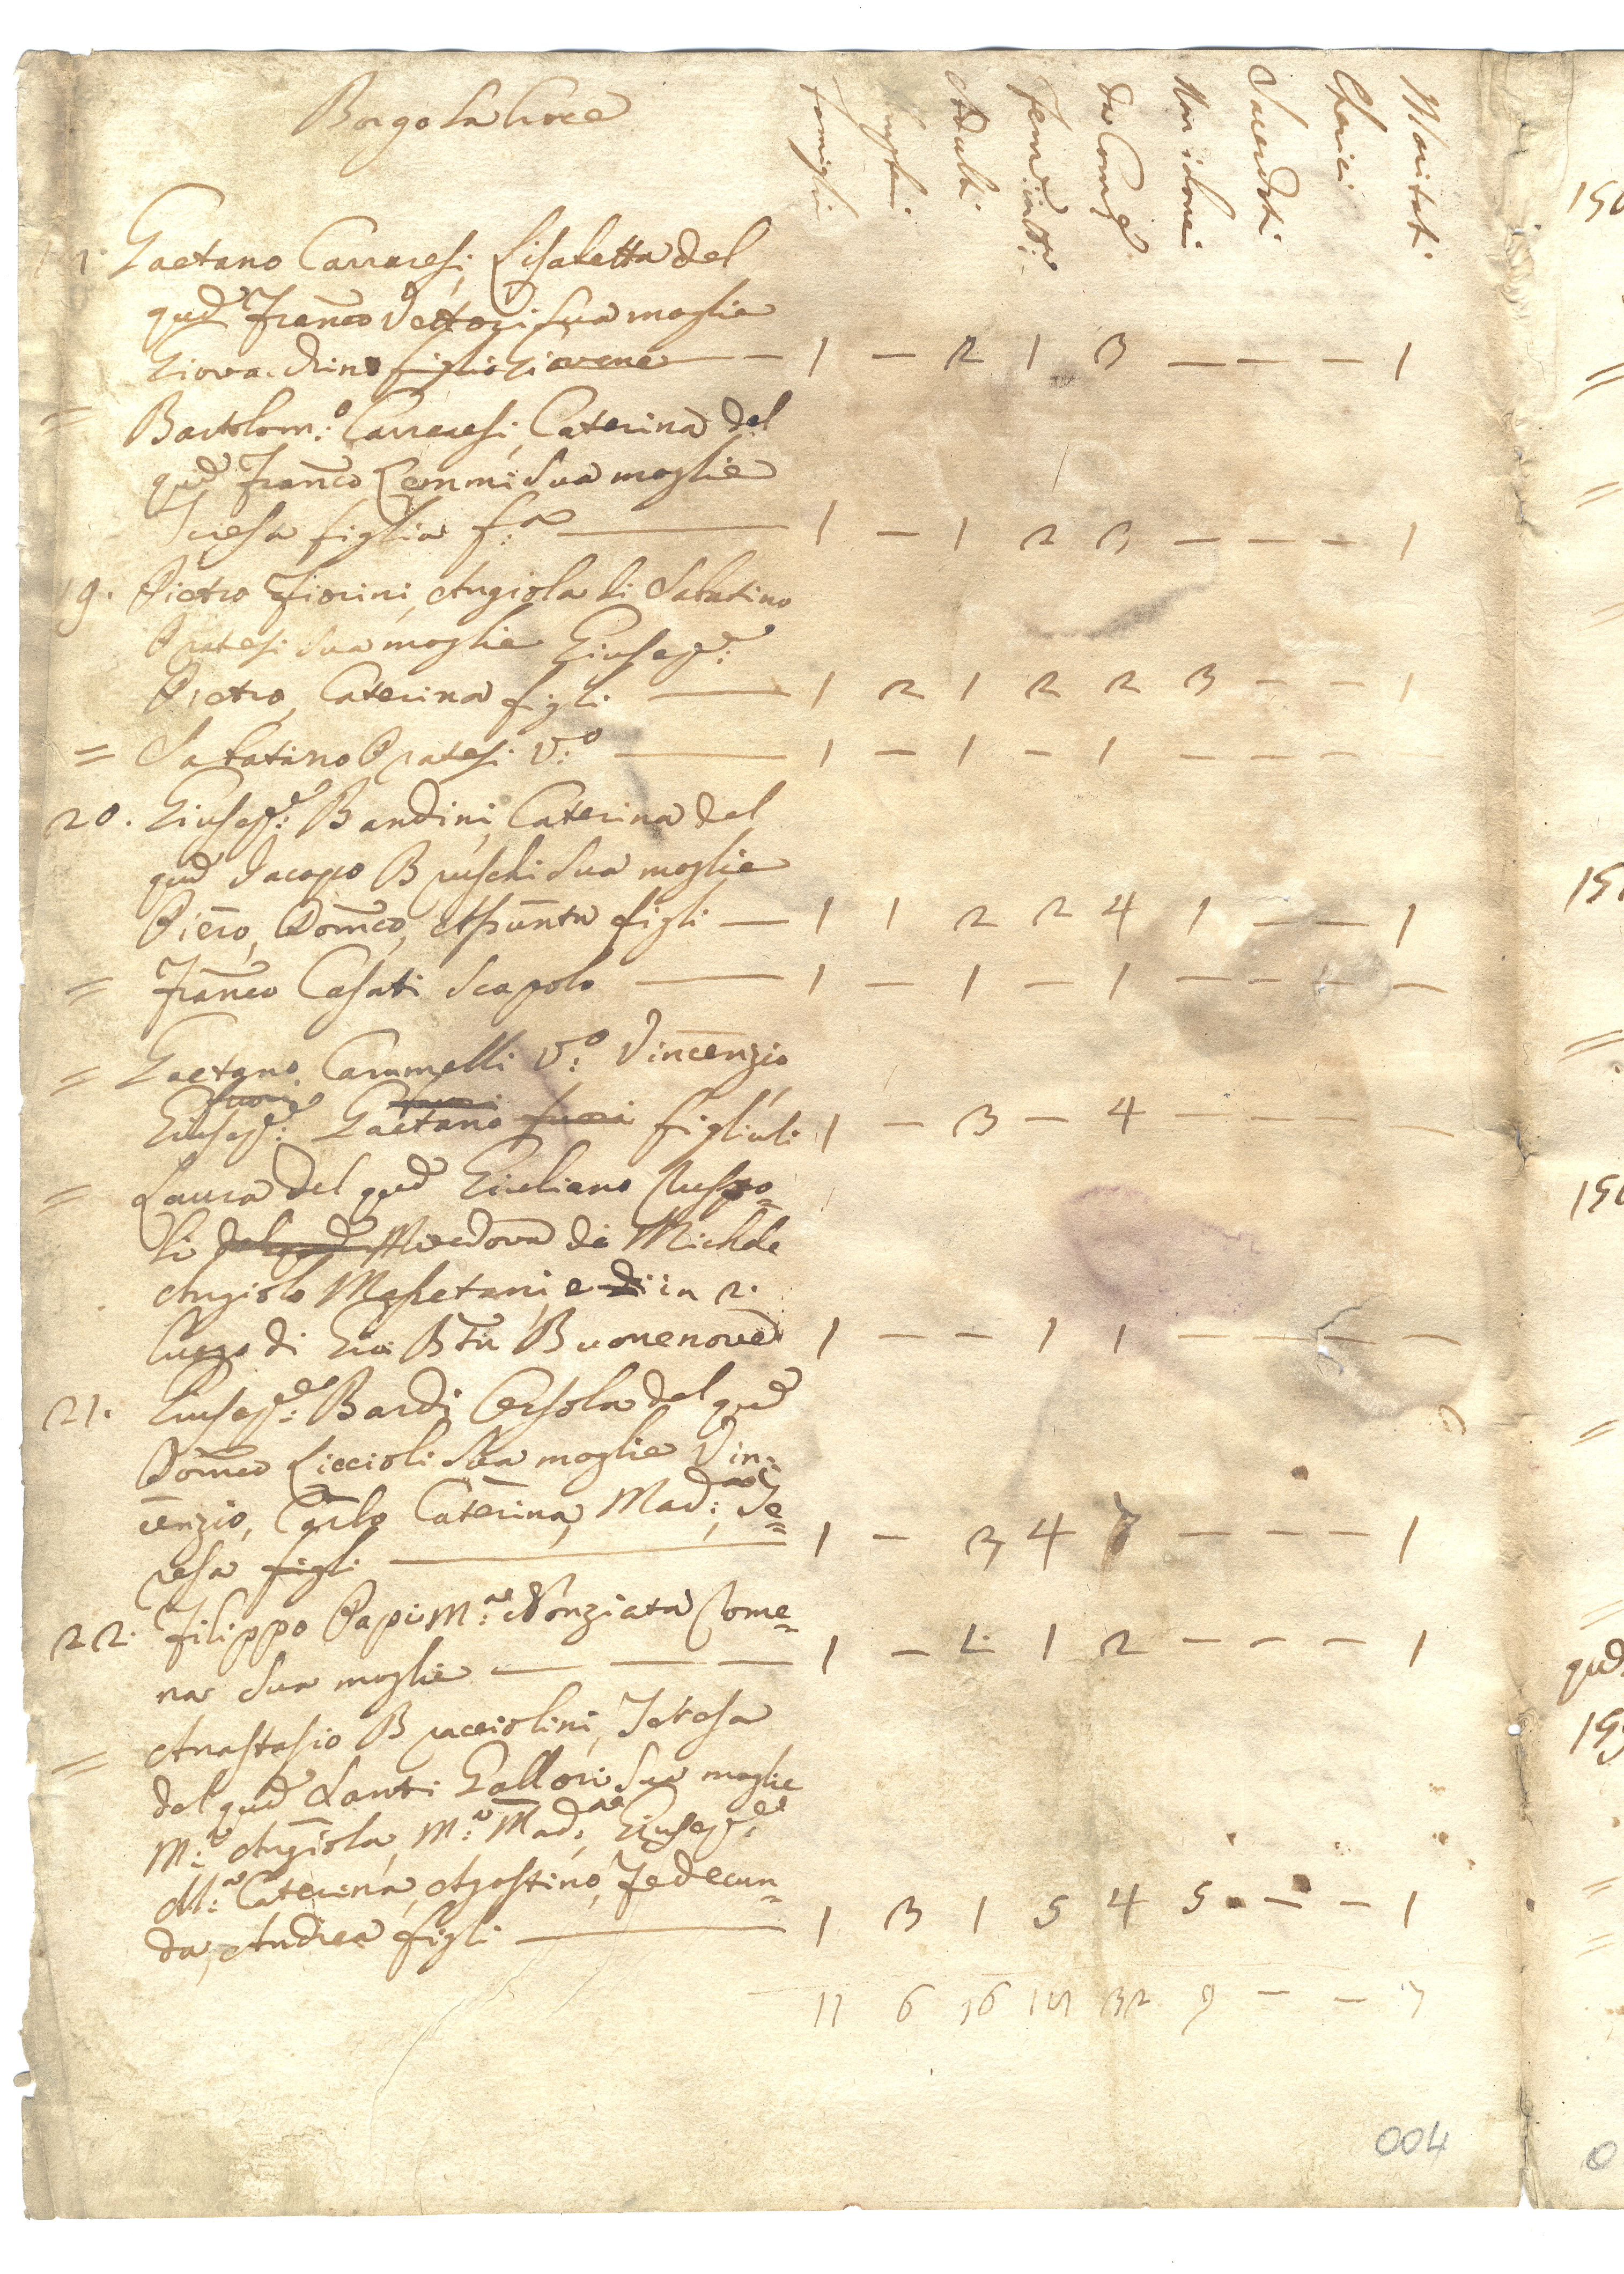 Borgo la Croce
famiglie
Adulti
Fem: in tto
Da Com:e
Non idonei
Sacerdoti
Cherici
Maritati
Gaetano Carraresi, Lisabetta del
qud Franco Vettori sua moglie
Giova. Dino figlio giovene — 1 — 2 1 3 — — — 1
= Bartolom:o Carraresi, Caterina del
qud Franco Lemmi sua moglie
Teresa figlia f:a — 1 — 1 2 3 — — — 1
19. Pietro Fiorini, Angiola di Sabatino
Pratesi sua moglie Giusep:e
Pietro, Caterina figli — 1 2 1 2 2 3 — — 1
= Sabatino Pratesi V:o — 1 — 1 — 1 — — —
20. Giusep:e Bandini, Caterina del
qud Jacopo Bruschi sua moglie
Piero, Domco, Asunta figli — 1 1 2 2 4 1 — — 1
= Franco Casati scapolo — 1 — 1 — 1 — — — —
= Gaetano Carumelli V:o Vincenzio
fuori
Giusep:e Gaetano fuori figliuli 1 — 3 — 4 — — — —
= Laura del qud Giuliano Ruspo=
li del qud Vedova di Michele
Angiolo Meghetani, e di in 2.
luogo di Gio Bta Buonenove 1 — — 1 1 — — — —
21. Giusep:e Bardi, Orsola del qud
Domco Liccioli sua moglie Vin=
cenzio, Carlo Caterina, Mad:a Te=
resa figli — 1 — 3 4 7 — — — 1
22. Filippo Papi M:a Nonziata Come=
na sua moglie — — — 1 — 1. 1 2 — — — 1
= Anastasio Bracciolini, Teresa
del qud Santi Gallori sua moglie
M:a Angiola, M:a Mad:na, Giusep:e
M:a Caterina, Agostino, Fedecun=
da, Andrea figli — 1 3 1 5 4 5 — — 1
11 6 16 18 32 9 — — 7
004